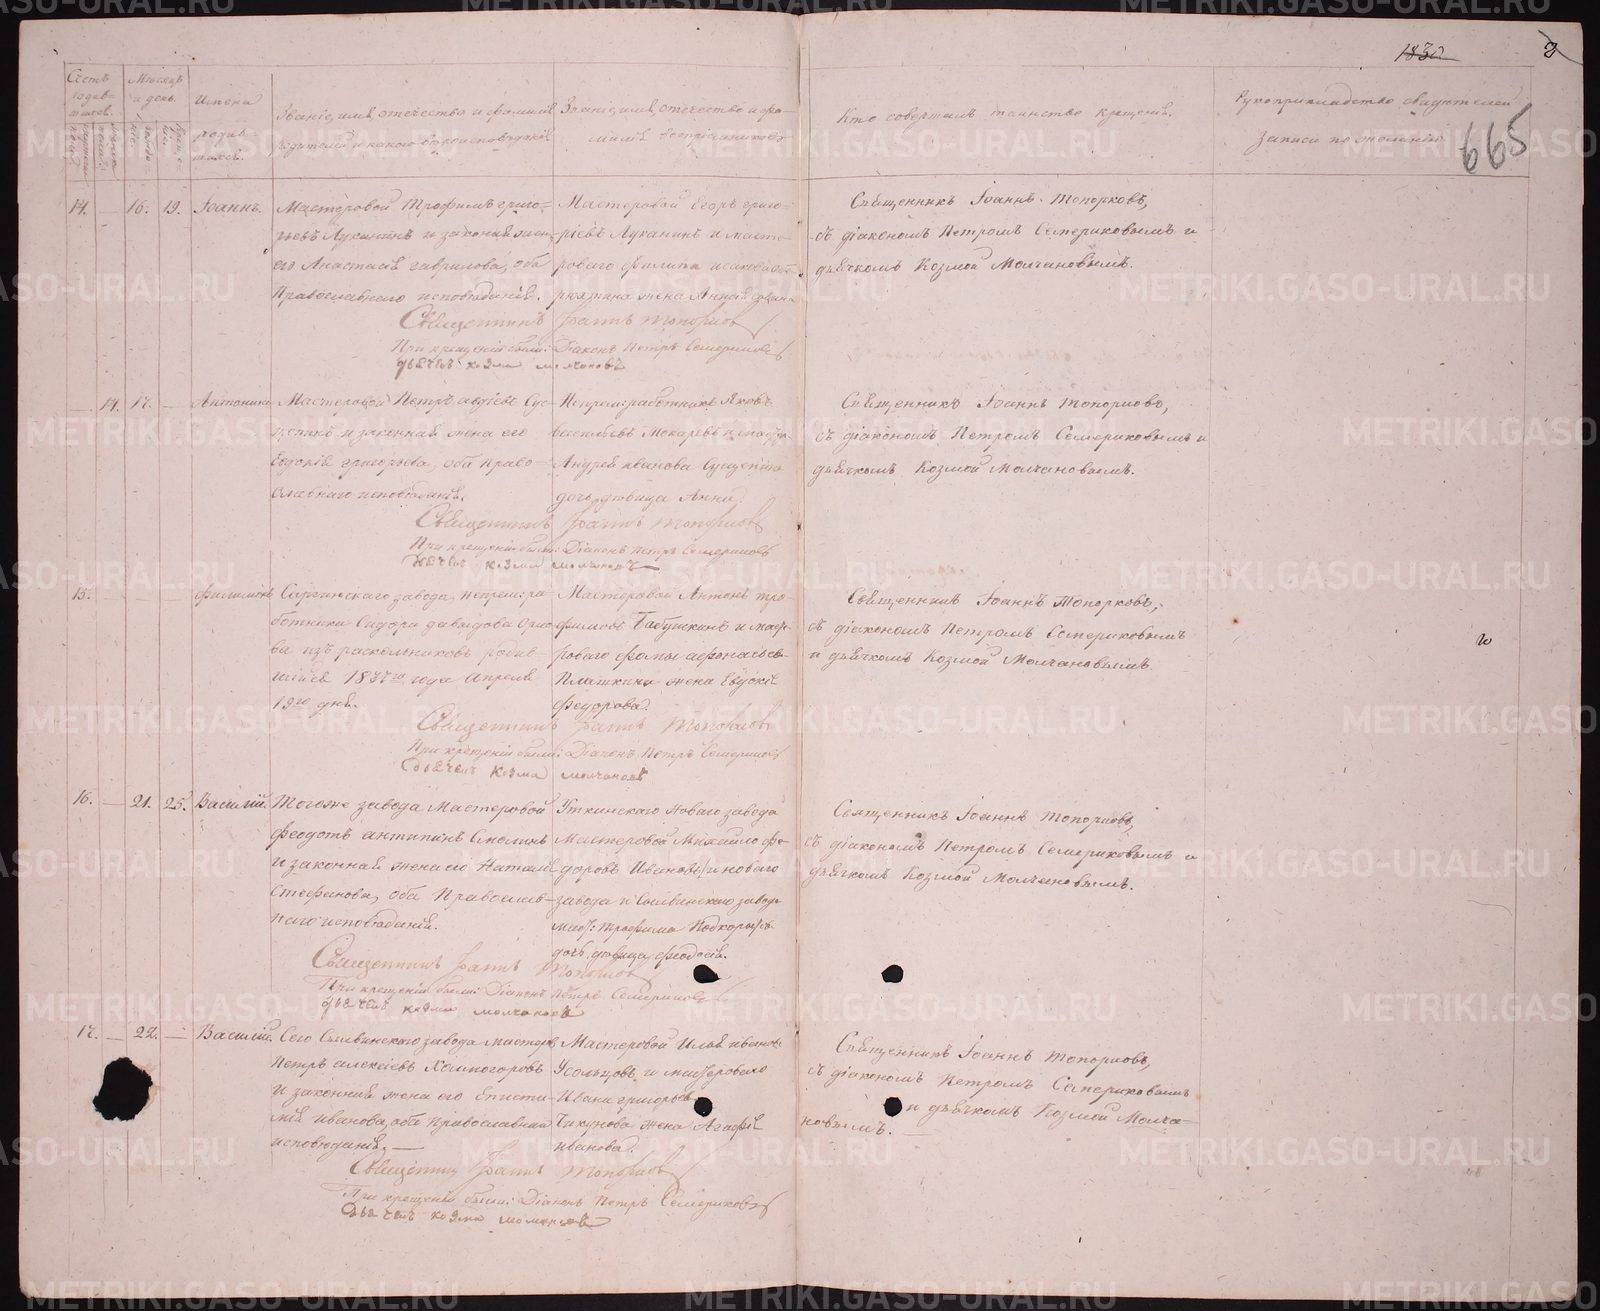 1830
2
665
Счетъ родив-шихся.
Мѣсяцъ и день.
Имена родив-шихся.
Званіе, имя, отечество и фамилія родителей и какого вѣроисповѣданія
Званіе, имя, отечество и фа-милія воспріемниковъ
Кто совершалъ таинство крещенія.
Рукоприкладство свидѣтелей записи по желанію
14. 16. 19. Іоаннъ.
Мастеровой Трофимъ григо-
рьевъ Луканинъ и законная жена
его Анастасія гаврилова, оба
Православнаго исповѣданія.
Мастеровой Егоръ григо-
рьевъ Луканинъ и масте-
роваго Филипа
жена Анна
Священникъ Іоаннъ Топорковъ,
съ діакономъ Петромъ Семериковымъ и
дьячкомъ Козмой Молчановымъ.
Священникъ Іоаннъ Топорковъ
При крещеніи были: Діаконъ Петръ Семериковъ
дьячекъ козма молчановъ
14. 17. Антонина
Мастеровой Петръ авдіевъ Сус-
и законная жена его
Евдокія григорьева, оба право-
славнаго исповѣданія.
Непрем: работникъ Яковъ
васильевъ Макаревъ и
Андрея иванова
дочь дѣвица Анна.
Священникъ Іоаннъ Топорковъ,
съ діакономъ Петромъ Семериковымъ и
дьячкомъ Козмой Молчановымъ.
Священникъ Іоаннъ Топорковъ
При крещеніи были: Діаконъ Петръ Семериковъ
дьячекъ козма молчановъ
15. Филимонъ
завода, непрем: ра-
ботника Сидора давыдова
ва изъ раскольниковъ родив-
шійся 1837го года Апреля
19го дня.
Мастеровой Антонъ тро-
фимовъ Бабушкинъ и масте-
роваго Фомы афонасьева
Плашкина жена Евдокія
Федорова.
Священникъ Іоаннъ Топорковъ,
съ діакономъ Петромъ Семериковымъ
и дьячкомъ Козмой Молчановымъ.
Священникъ Іоаннъ Топорковъ
При крещеніи были: Діаконъ Петръ Семериковъ
дьячекъ козма молчановъ
16. 21. 25. Василій.
Тогоже завода Мастеровой
Феодотъ антипинъ Смолинъ
и законная жена его Наталія
Стефанова, оба Православ-
наго исповѣданія.
Уткинскаго Новаго завода
Мастеровой Михайло фе-
доровъ Ивановъ и новаго
завода
маст: трофима
дочь дѣвица Феодосія.
Священникъ Іоаннъ Топорковъ,
съ діакономъ Петромъ Семериковымъ и
дьячкомъ Козмой Молчановымъ.
Священникъ Іоаннъ Топорковъ
При крещеніи были: Діаконъ Петръ Семериковъ
дьячекъ козма молчановъ
17. 22. Василій.
Сего Сылвинскаго завода мастеров
Петръ алексѣевъ Холмогоровъ
и законная жена его Еписти-
мія иванова, оба православнаго
исповѣданія,
Мастеровой Илья ивановъ
Усольцовъ, и мастероваго
Ивана григорьева
жена Агафія
иванова.
Священникъ Іоаннъ Топорковъ,
съ діакономъ Петромъ Семериковымъ
и дьячкомъ Козмой Молча-
новымъ.
Священникъ Іоаннъ Топорковъ
При крещеніи были: Діаконъ Петръ Семериковъ
дьячекъ козма молчановъ
METRIKI.GASO-URAL.RU